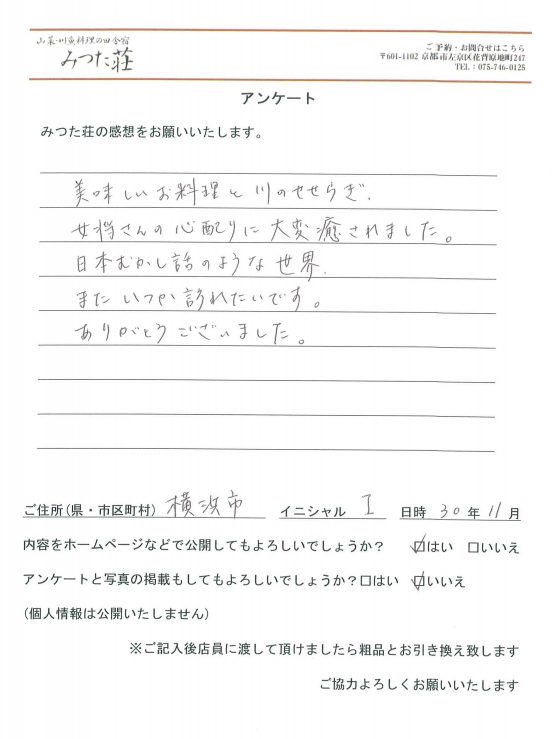 山菜・川魚料理の田舎宿
みつた荘
ご予約・お問合せはこちら
〒601-1102 京都市左京区花背原地町247
TEL : 075-746-0125
アンケート
みつた荘の感想をお願いいたします。
美味しいお料理と川のせせらぎ.
女将さんの心配りに大変癒されました。
日本むかし話のような世界.
またいつか訪れたいです。
ありがとうございました。
ご住所(県・市区町村) 横浜市 イニシャル I 日時 30年11月
内容をホームページなどで公開してもよろしいでしょうか? ☑はい □いいえ
アンケートと写真の掲載もしてもよろしいでしょうか?□はい ☑いいえ
(個人情報は公開いたしません)
※ご記入後店員に渡して頂けましたら粗品とお引き換え致します
ご協力よろしくお願いいたします